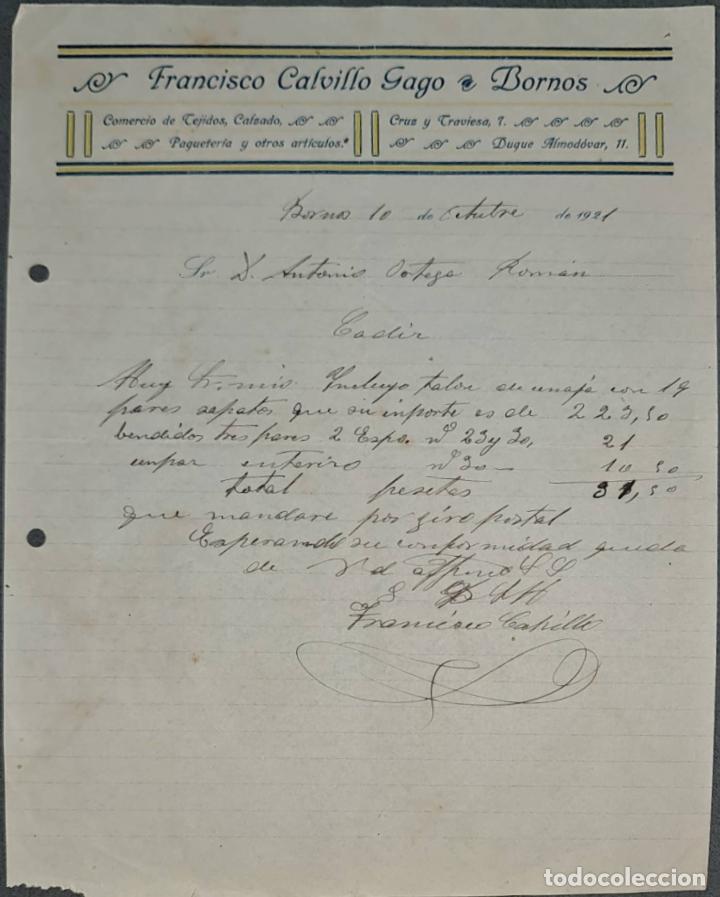 Francisco Calvillo Gago Bornos
Comercio de Tejidos, Calzado,
Paquetería y otros artículos.
Cruz y Traviesa, 7.
Duque Almodóvar, 11.
Bornos 10 de Octubre de 1921
Sr D. Antonio Ortega Román
Cadiz
Muy Sr. mio. Incluyo talon de una caja con 19
pares sapatos que su inporte es de 223,50
bendidos tres pares 2 Espo. nº 23 y 30, 21
un par enteriro nº 30 — 10 50
total pesetas 31,50
que mandare por giro postal
Esperando su conformidad queda
de Vd affmo S S
q
Francisco Calvillo
todocoleccion.net